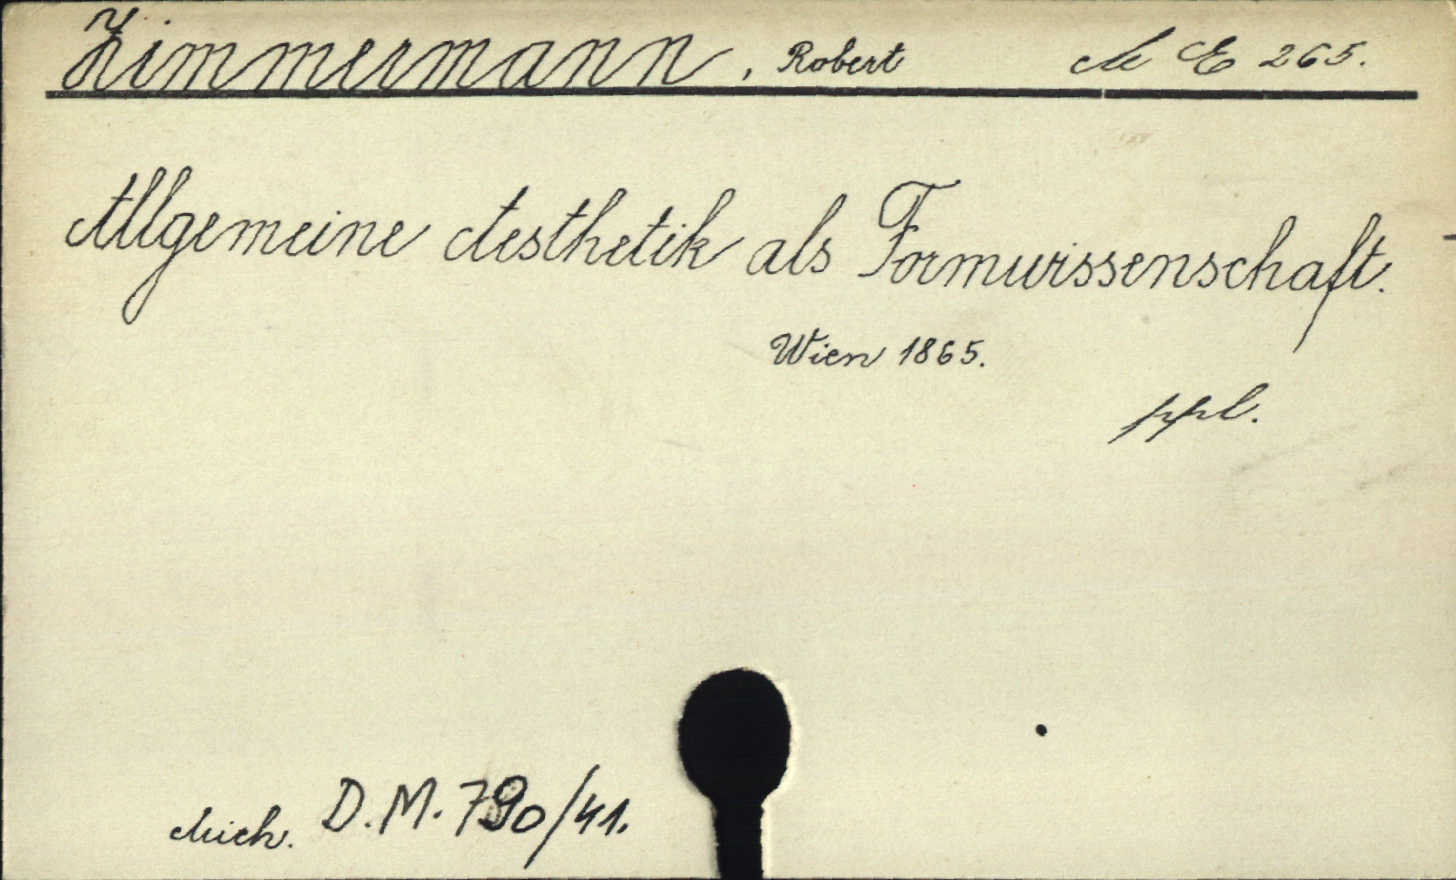 Zimmermann, Robert M E 265.
Allgemeine Aesthetik als Formwissenschaft.
Wien 1865.
ppl.
D.M. 790/41.